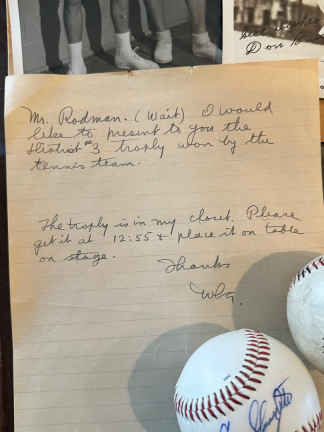 Don
Mr. Rodman. (Wait) I would
like to present to you the
District #3 trophy won by the
tennis team.
The trophy is in my closet. Please
get it at 12:55 & place it on table
on stage.
Thanks